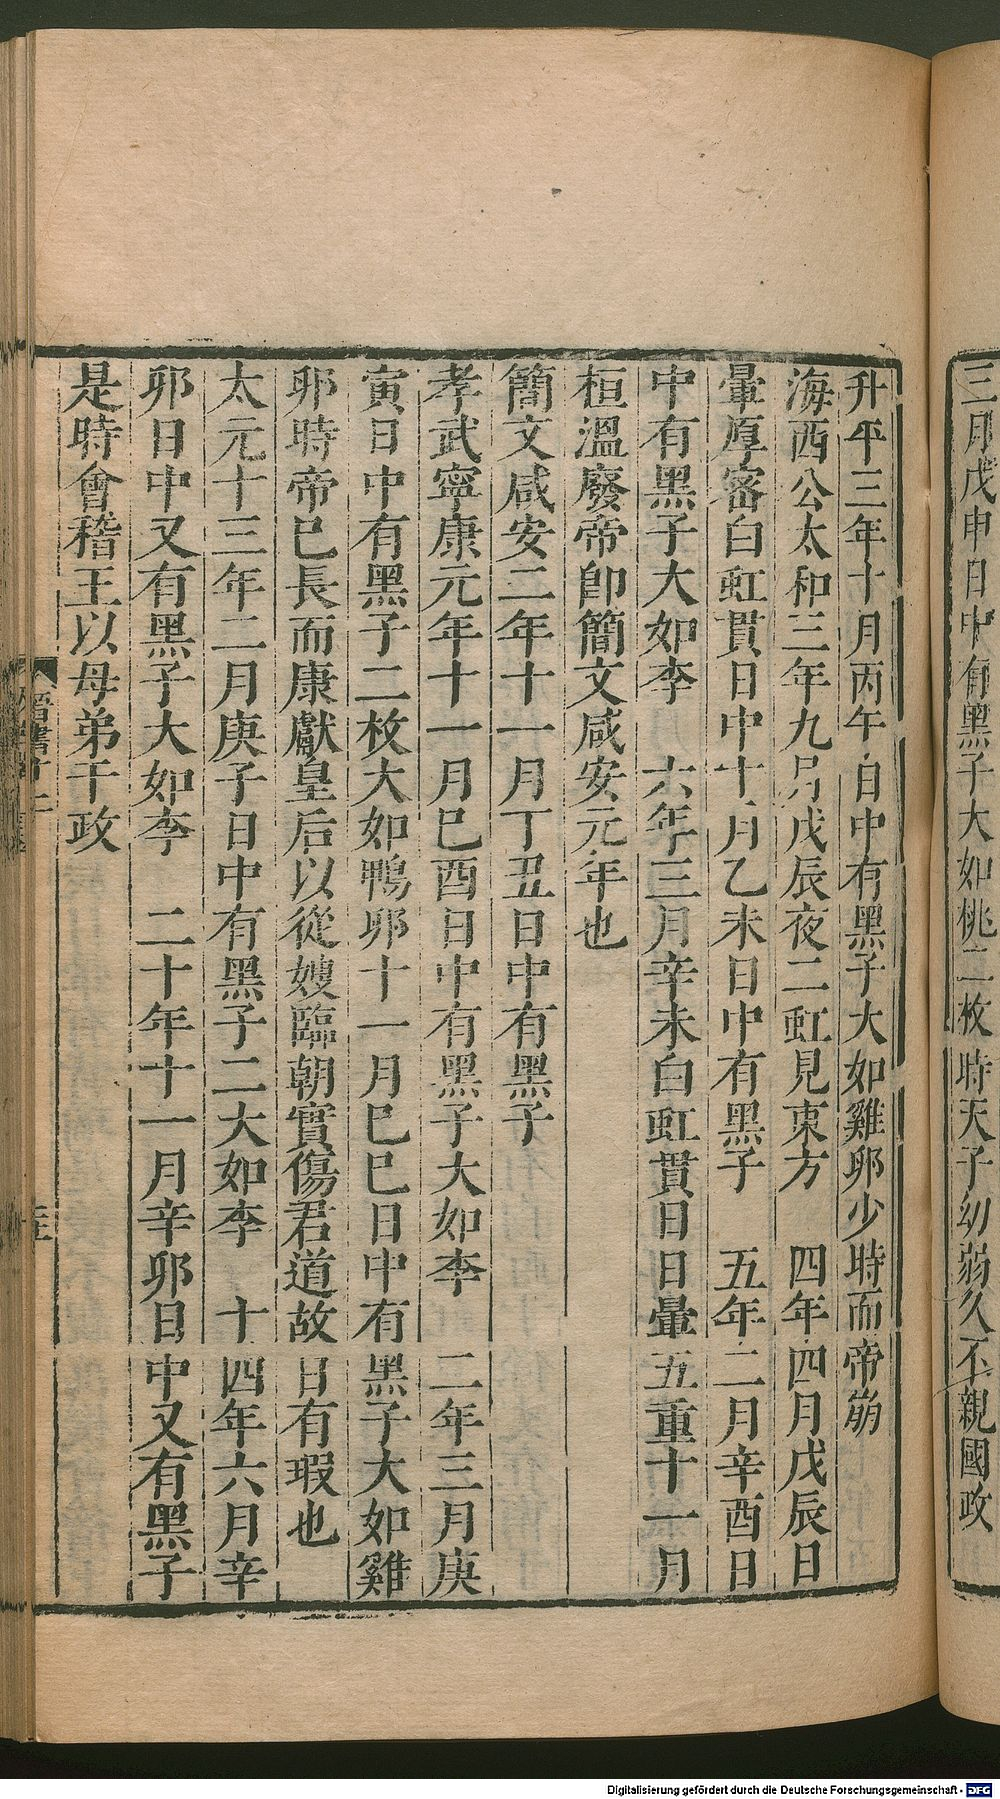 三月戊申日中有黑子大如桃二枚時天子幼弱久不親國政
升平三年十月丙午日中有黑子大如雞卵少時而帝崩
海西公太和三年九月戊辰夜二虹見東方　四年四月戊辰日
暈厚密白虹貫日中十月乙未日中有黑子　五年二月辛酉日
中有黑子大如李　六年三月辛未白虹貫日日暈五重十一月
桓溫廢帝卽簡文咸安元年也
簡文咸安二年十一月丁丑日中有黑子
孝武寧康元年十一月巳酉日中有黑子大如李　二年三月庚
寅日中有黑子二枚大如鴨卵十一月巳巳日中有黑子大如雞
卵時帝巳長而康獻皇后以從嫂臨朝實傷君道故日有瑕也
太元十三年二月庚子日中有黑子二大如李　十四年六月辛
卯日中又有黑子大如李　二十年十一月辛卯日中又有黑子
是時會稽王以母弟干政
晉書十二
Digitalisierung gefördert durch die Deutsche Forschungsgemeinschaft - DFG